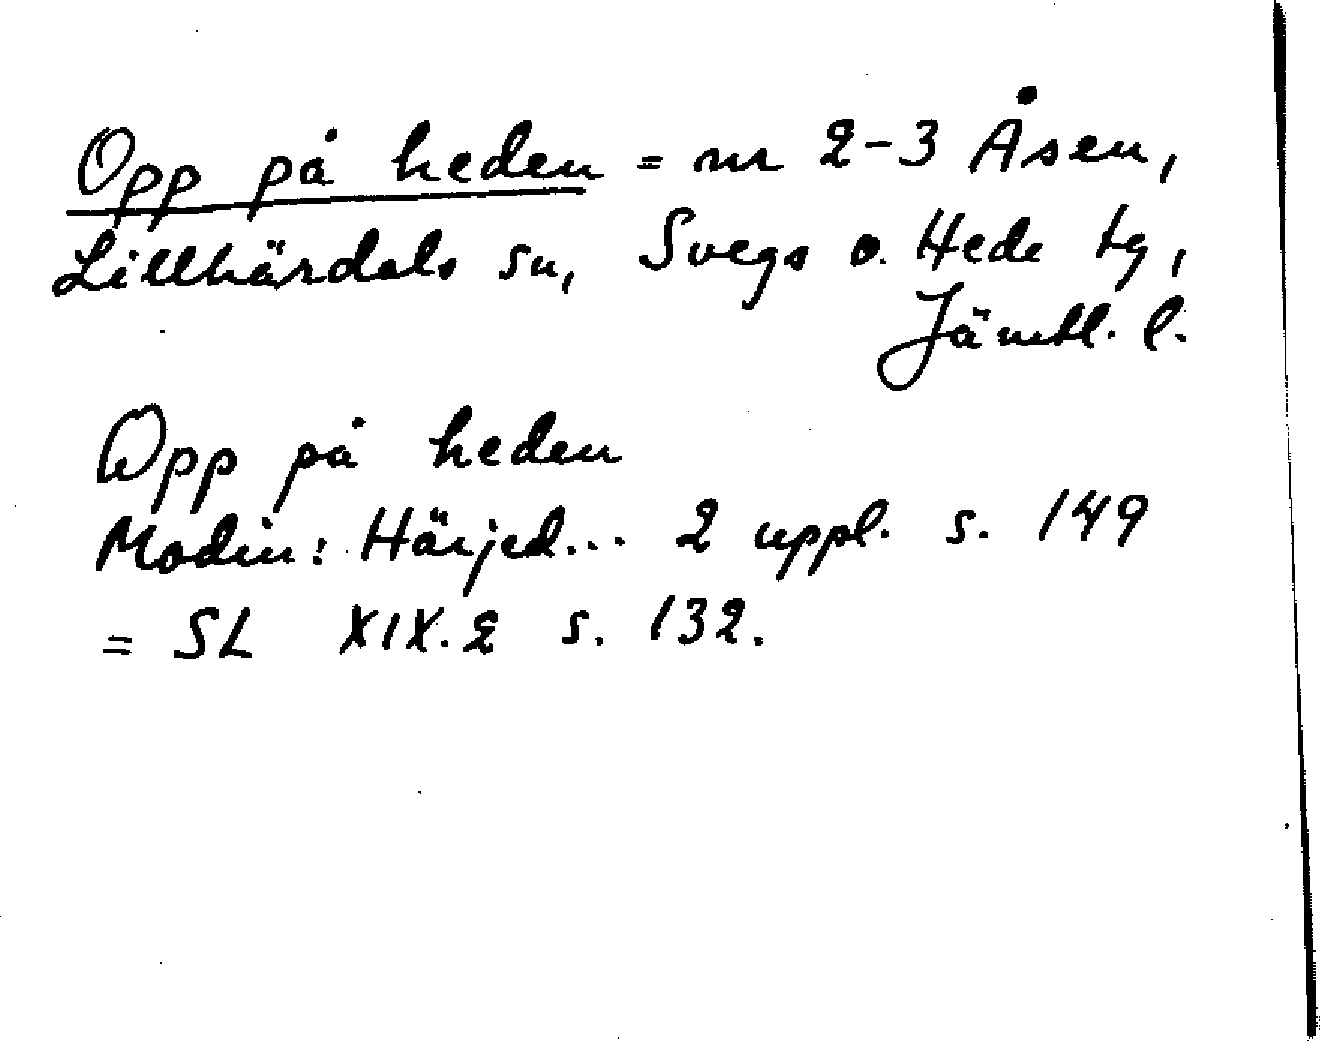 Opp på heden = nr 2-3 Åsen,
Lillhärdals sn, Svegs o. Hede tg,
Jämtl. l.
Opp på heden
Modin: Härjed... 2 uppl. s. 149
= SL XIX.2 s. 132.